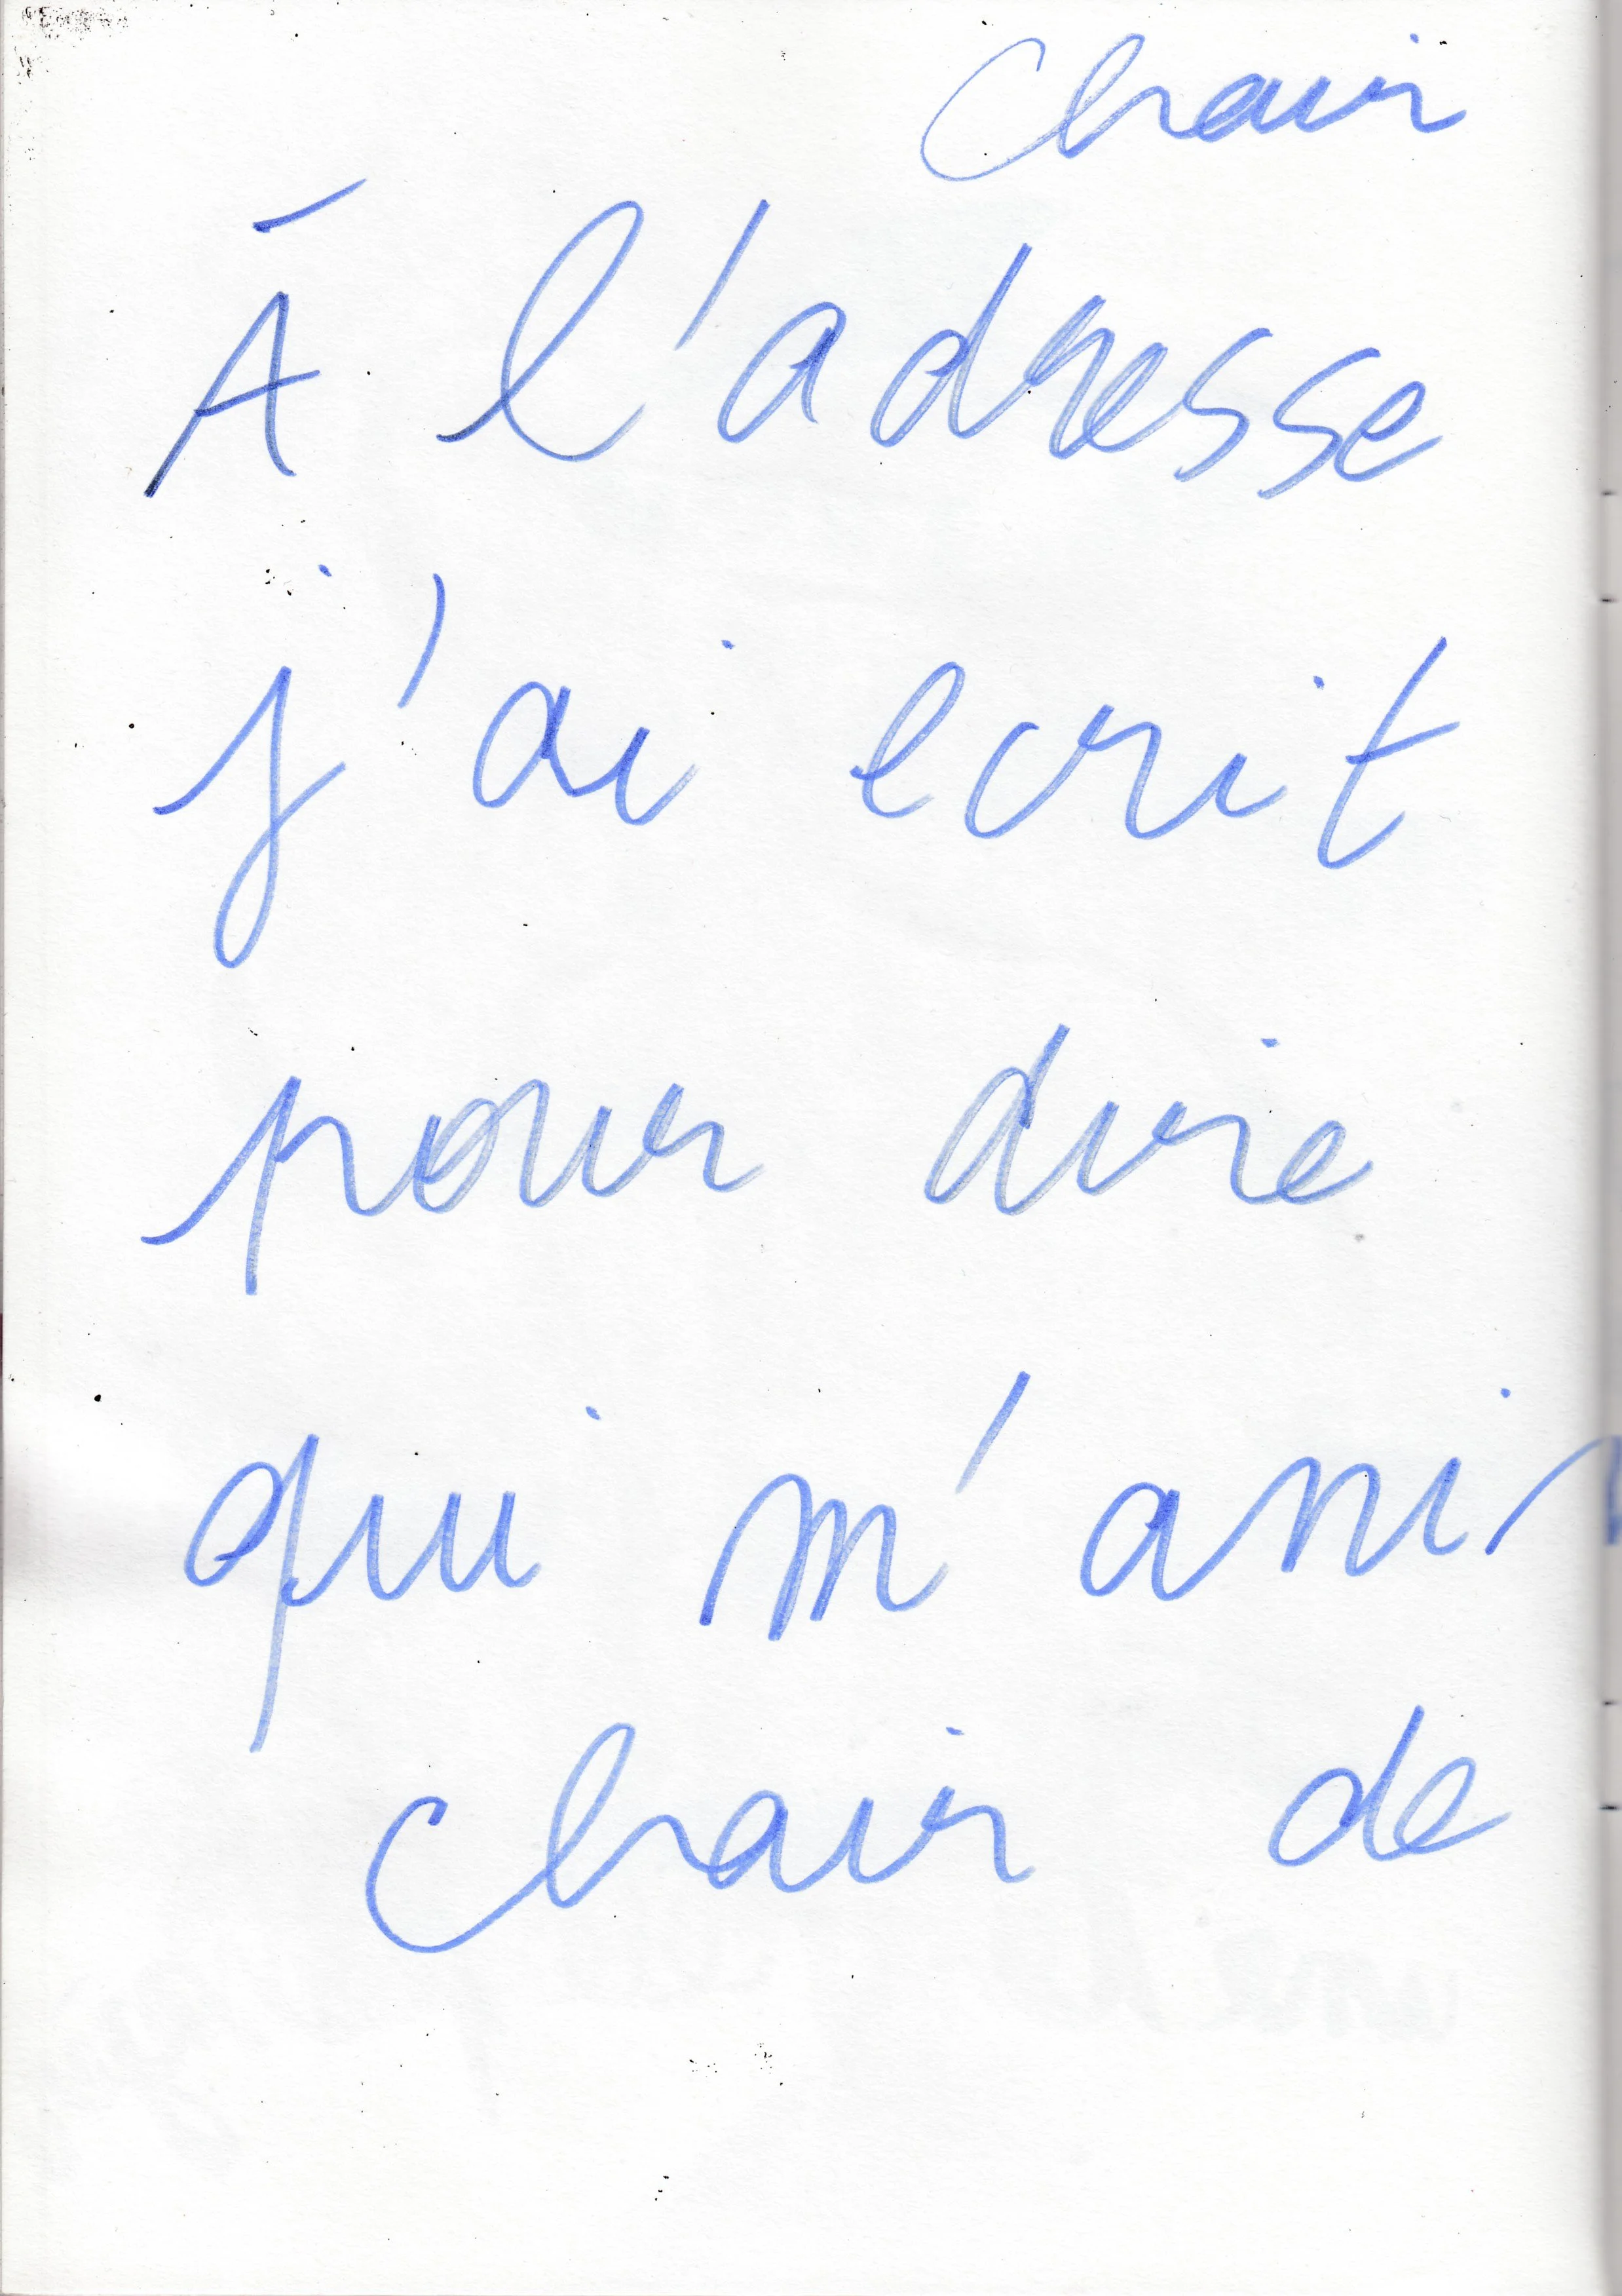 chair
À l'adresse
j'ai ecrit
pour dire
qui m'anim
chair de